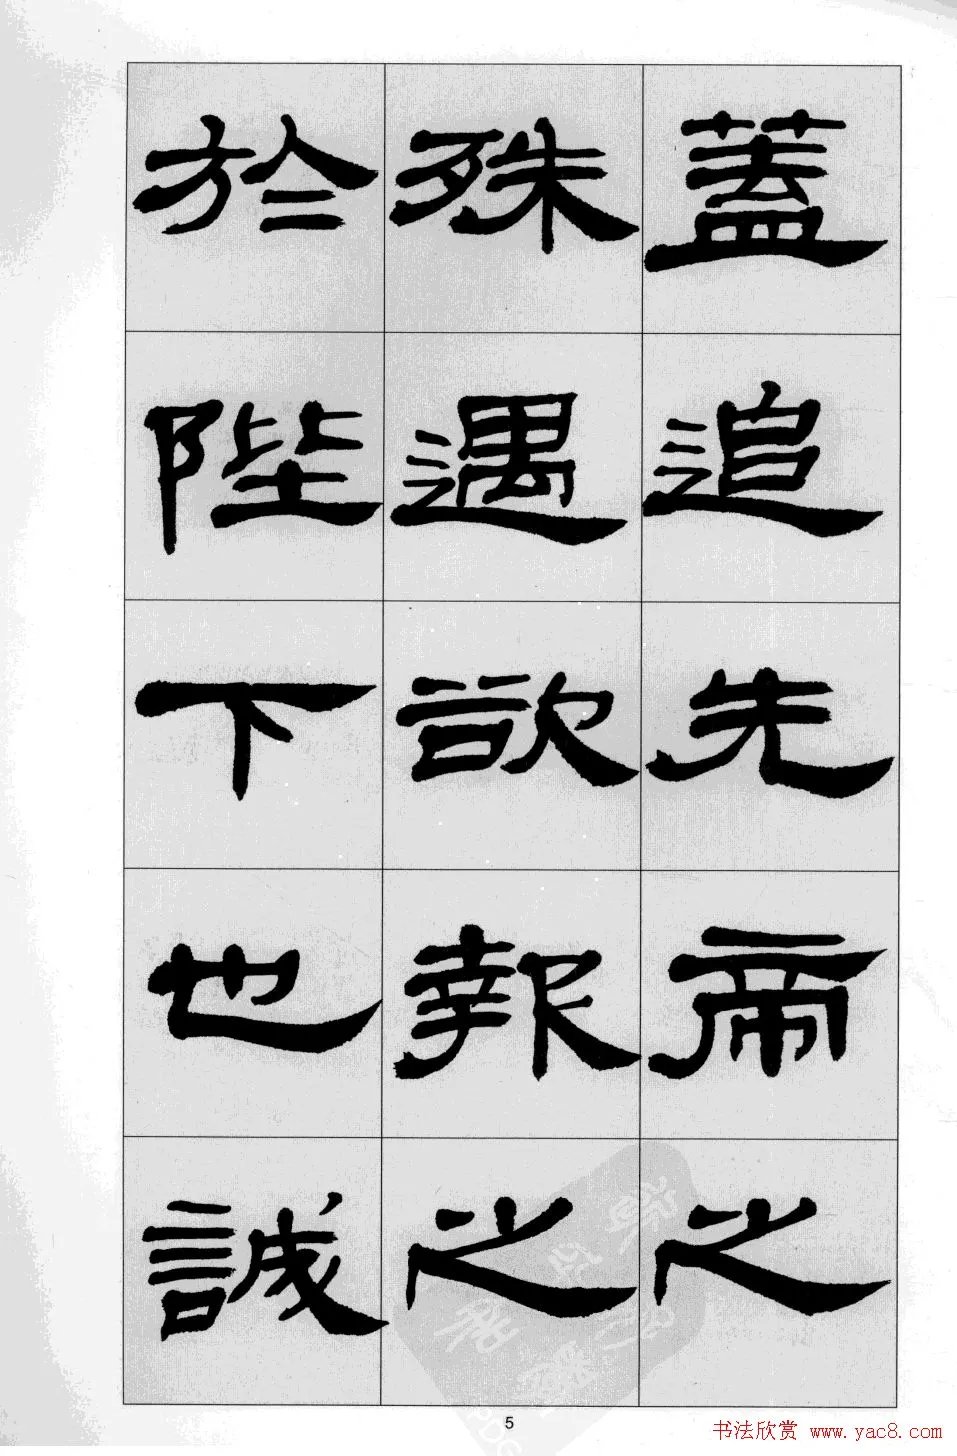 蓋追先帝之
殊遇欲報之
於陛下也誠
5
书法欣赏 www.yac8.com